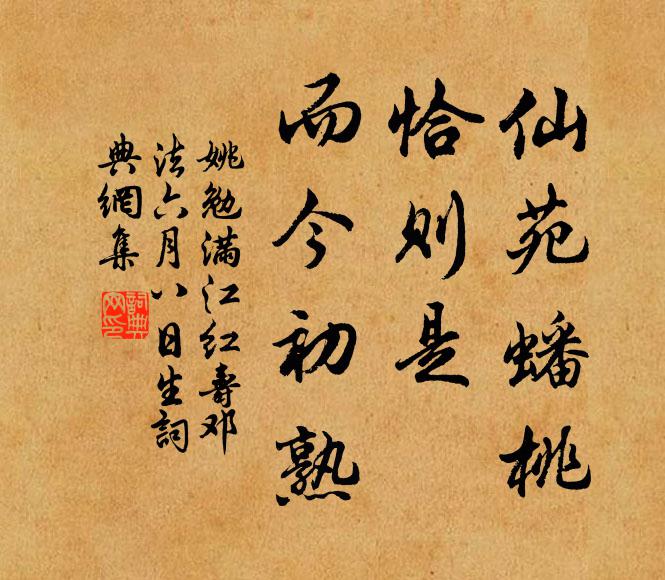 仙苑蟠桃
恰则是
而今初熟
姚勉满江红寿邓
法六月八日生詞
典網集
詞典網印